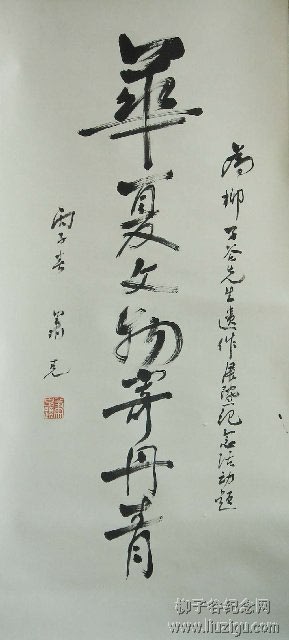 为柳子谷先生遗作展暨纪念活动题
華夏文物寄丹青
丙子春 萧克
柳子谷纪念网
www.liuzigu.com